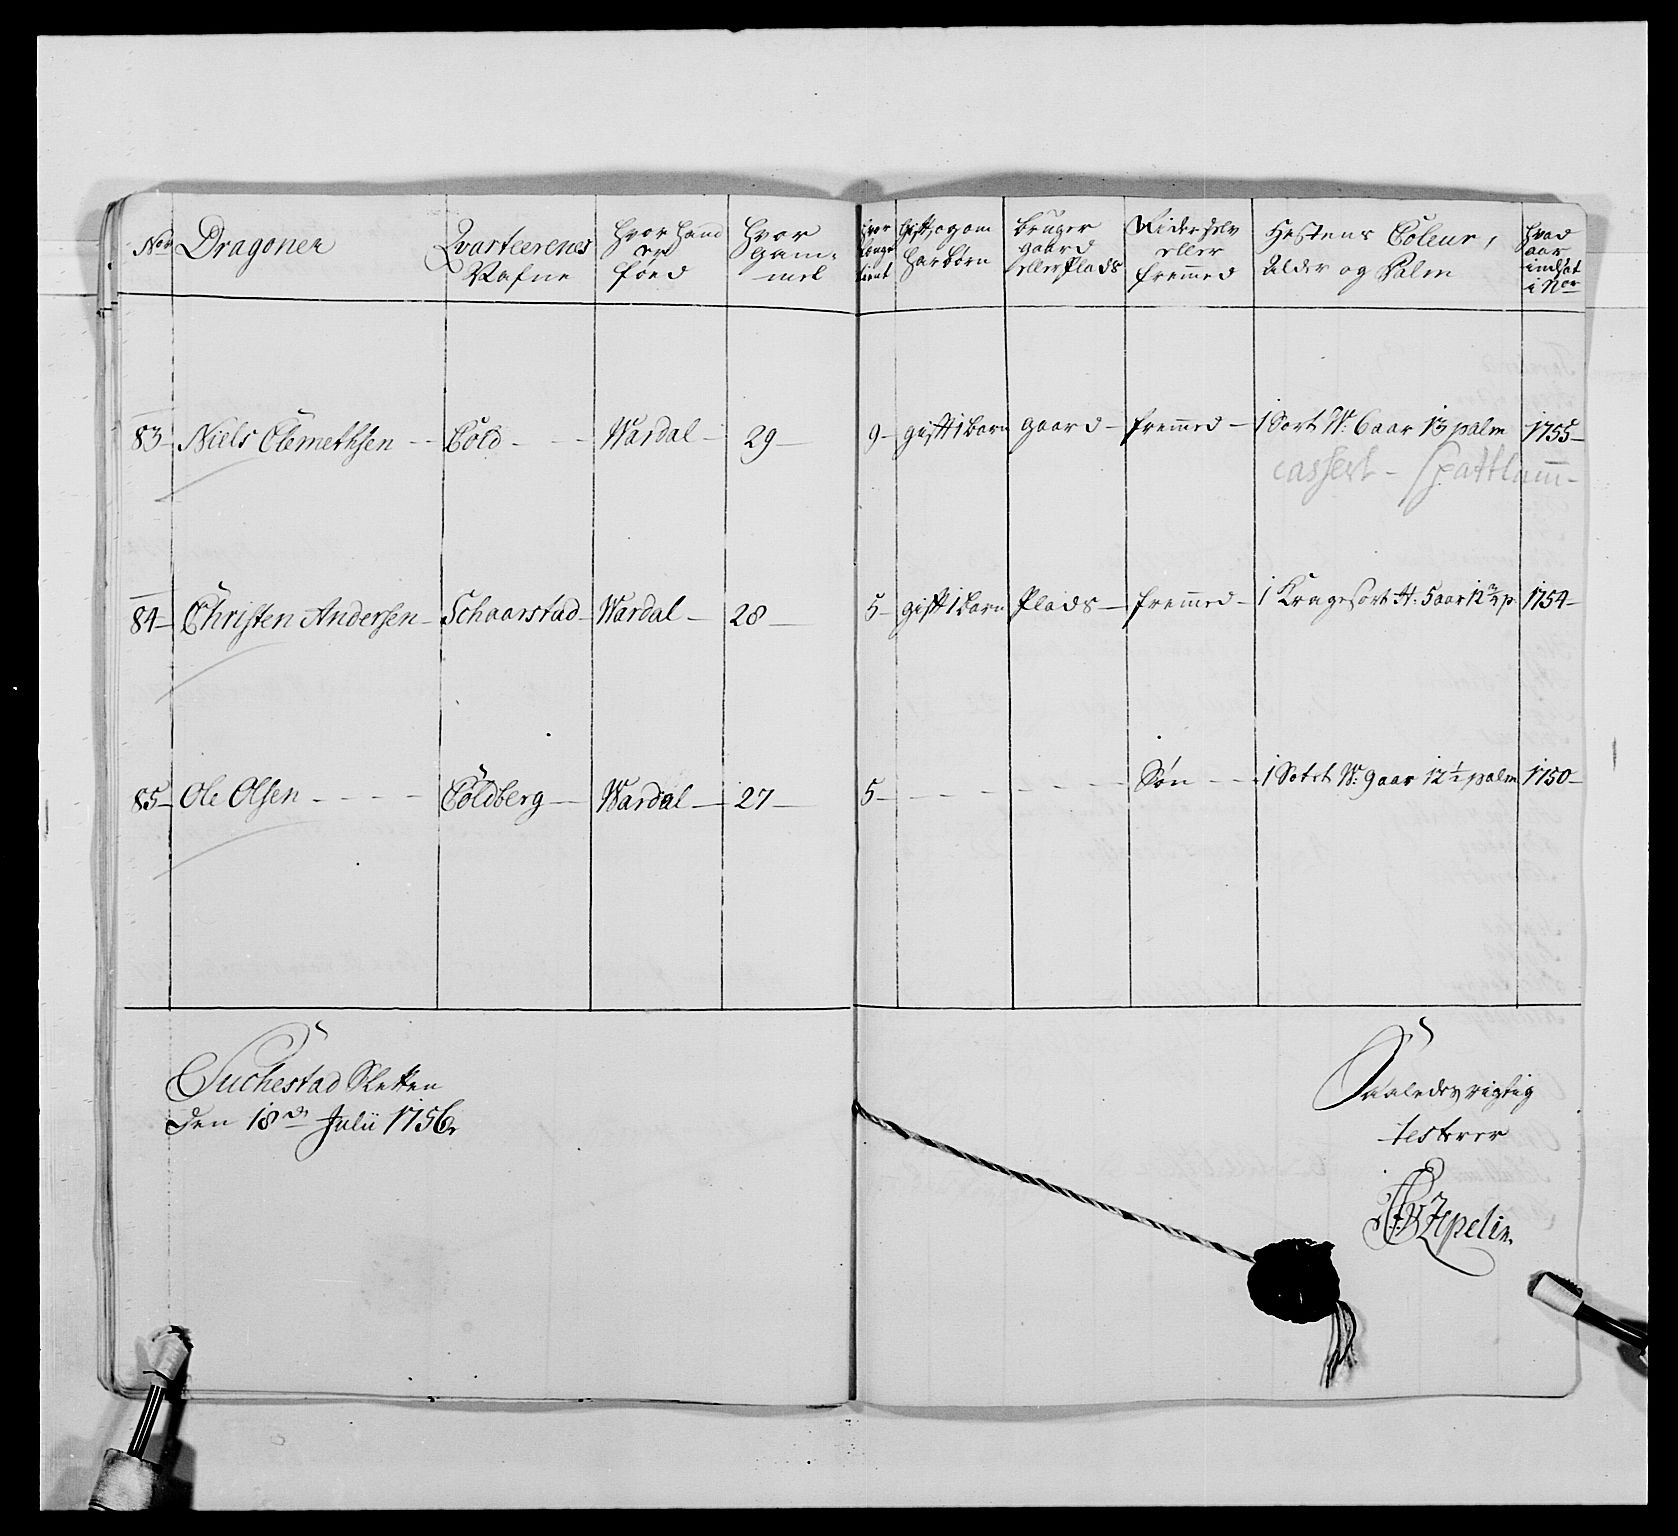 Nor Dragoner Qvarteerenes Nafne hvor hand er föed hvor gam-mel hvor længe tient gift, og om har börn bruger gaard eller Plads Rider selv eller fremmed Hestens Coleur, Alder og Palm hvad aar indsat i Nor
83 - Niels Clemethsen - - Cold - - - Wardal - 29 - 9 - gift 1 barn gaard - fremmed - 1 Sort W: 6 aar 13 palm 1755 -
cassert - Spattlam -
84 - Christen Andersen - Schaarstad - Wardal - 28 - 5 - gift 1 barn Plads - fremmed - 1 Kragesort H: 5 aar 12 3/4 p: 1754 -
85 - Ole Olsen - - - - Cöldberg - Wardal - 27 - 5 - - - - - - - Sön - - 1 Sort W: 9 aar 12 1/2 palm 1750 -
Suchestad Sletten
den 18de Julii 1756
Saaledes rigtig
testerer
Zepelin.